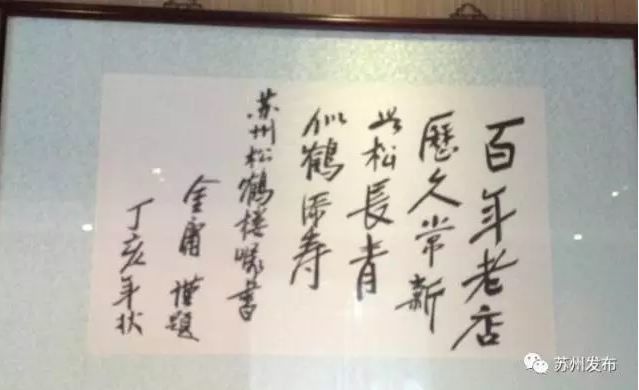 百年老店
歷久常新
此松長青
似鶴添壽
苏州松鹤楼嘱書
金庸 谨題
丁亥年状
苏州发布